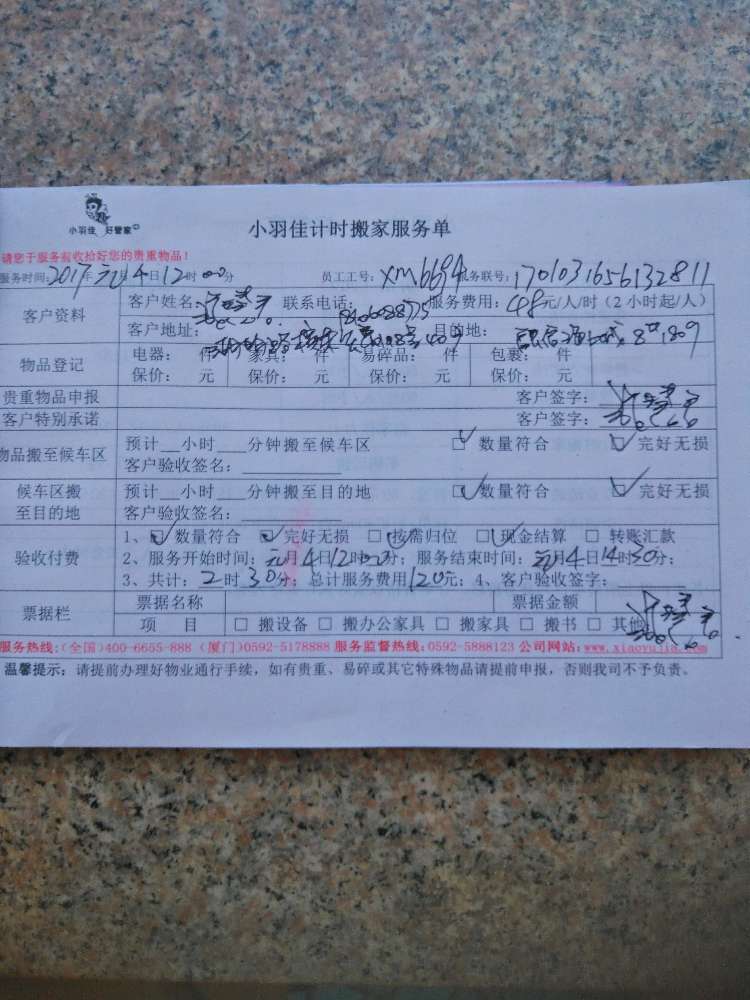 小羽佳 好管家
小羽佳计时搬家服务单
请您于服务前收拾好您的贵重物品!
服务时间:2017年元月4日12时00分 员工工号:xm6694 服务联号:1701031656132811
客户资料 客户姓名: 联系电话: 服务费用:48元/人/时(2小时起/人)
客户地址: 目的地:
物品登记 电器: 件 家具: 件 易碎品: 件 包裹: 件
保价: 元 保价: 元 保价: 元 保价: 元
贵重物品申报 客户签字:
客户特别承诺 客户签字:
物品搬至候车区 预计__小时___分钟搬至候车区 □ 数量符合 □ 完好无损
客户验收签名:
候车区搬至目的地 预计__小时___分钟搬至目的地 □ 数量符合 □ 完好无损
客户验收签名:
验收付费 1、□ 数量符合 □ 完好无损 □ 按需归位 □ 现金结算 □ 转账汇款
2、服务开始时间:元月4日12时00分;服务结束时间:元月4日14时30分;
3、共计:2时30分;总计服务费用120元;4、客户验收签字:
票据栏 票据名称 票据金额
项 目 □ 搬设备 □ 搬办公家具 □ 搬家具 □ 搬书 □ 其他
服务热线:(全国)400-6655-888 (厦门)0592-5178888 服务监督热线:0592-5888123 公司网站:www.xiaoyujia.com
温馨提示:请提前办理好物业通行手续,如有贵重、易碎或其它特殊物品请提前申报,否则我司不予负责。